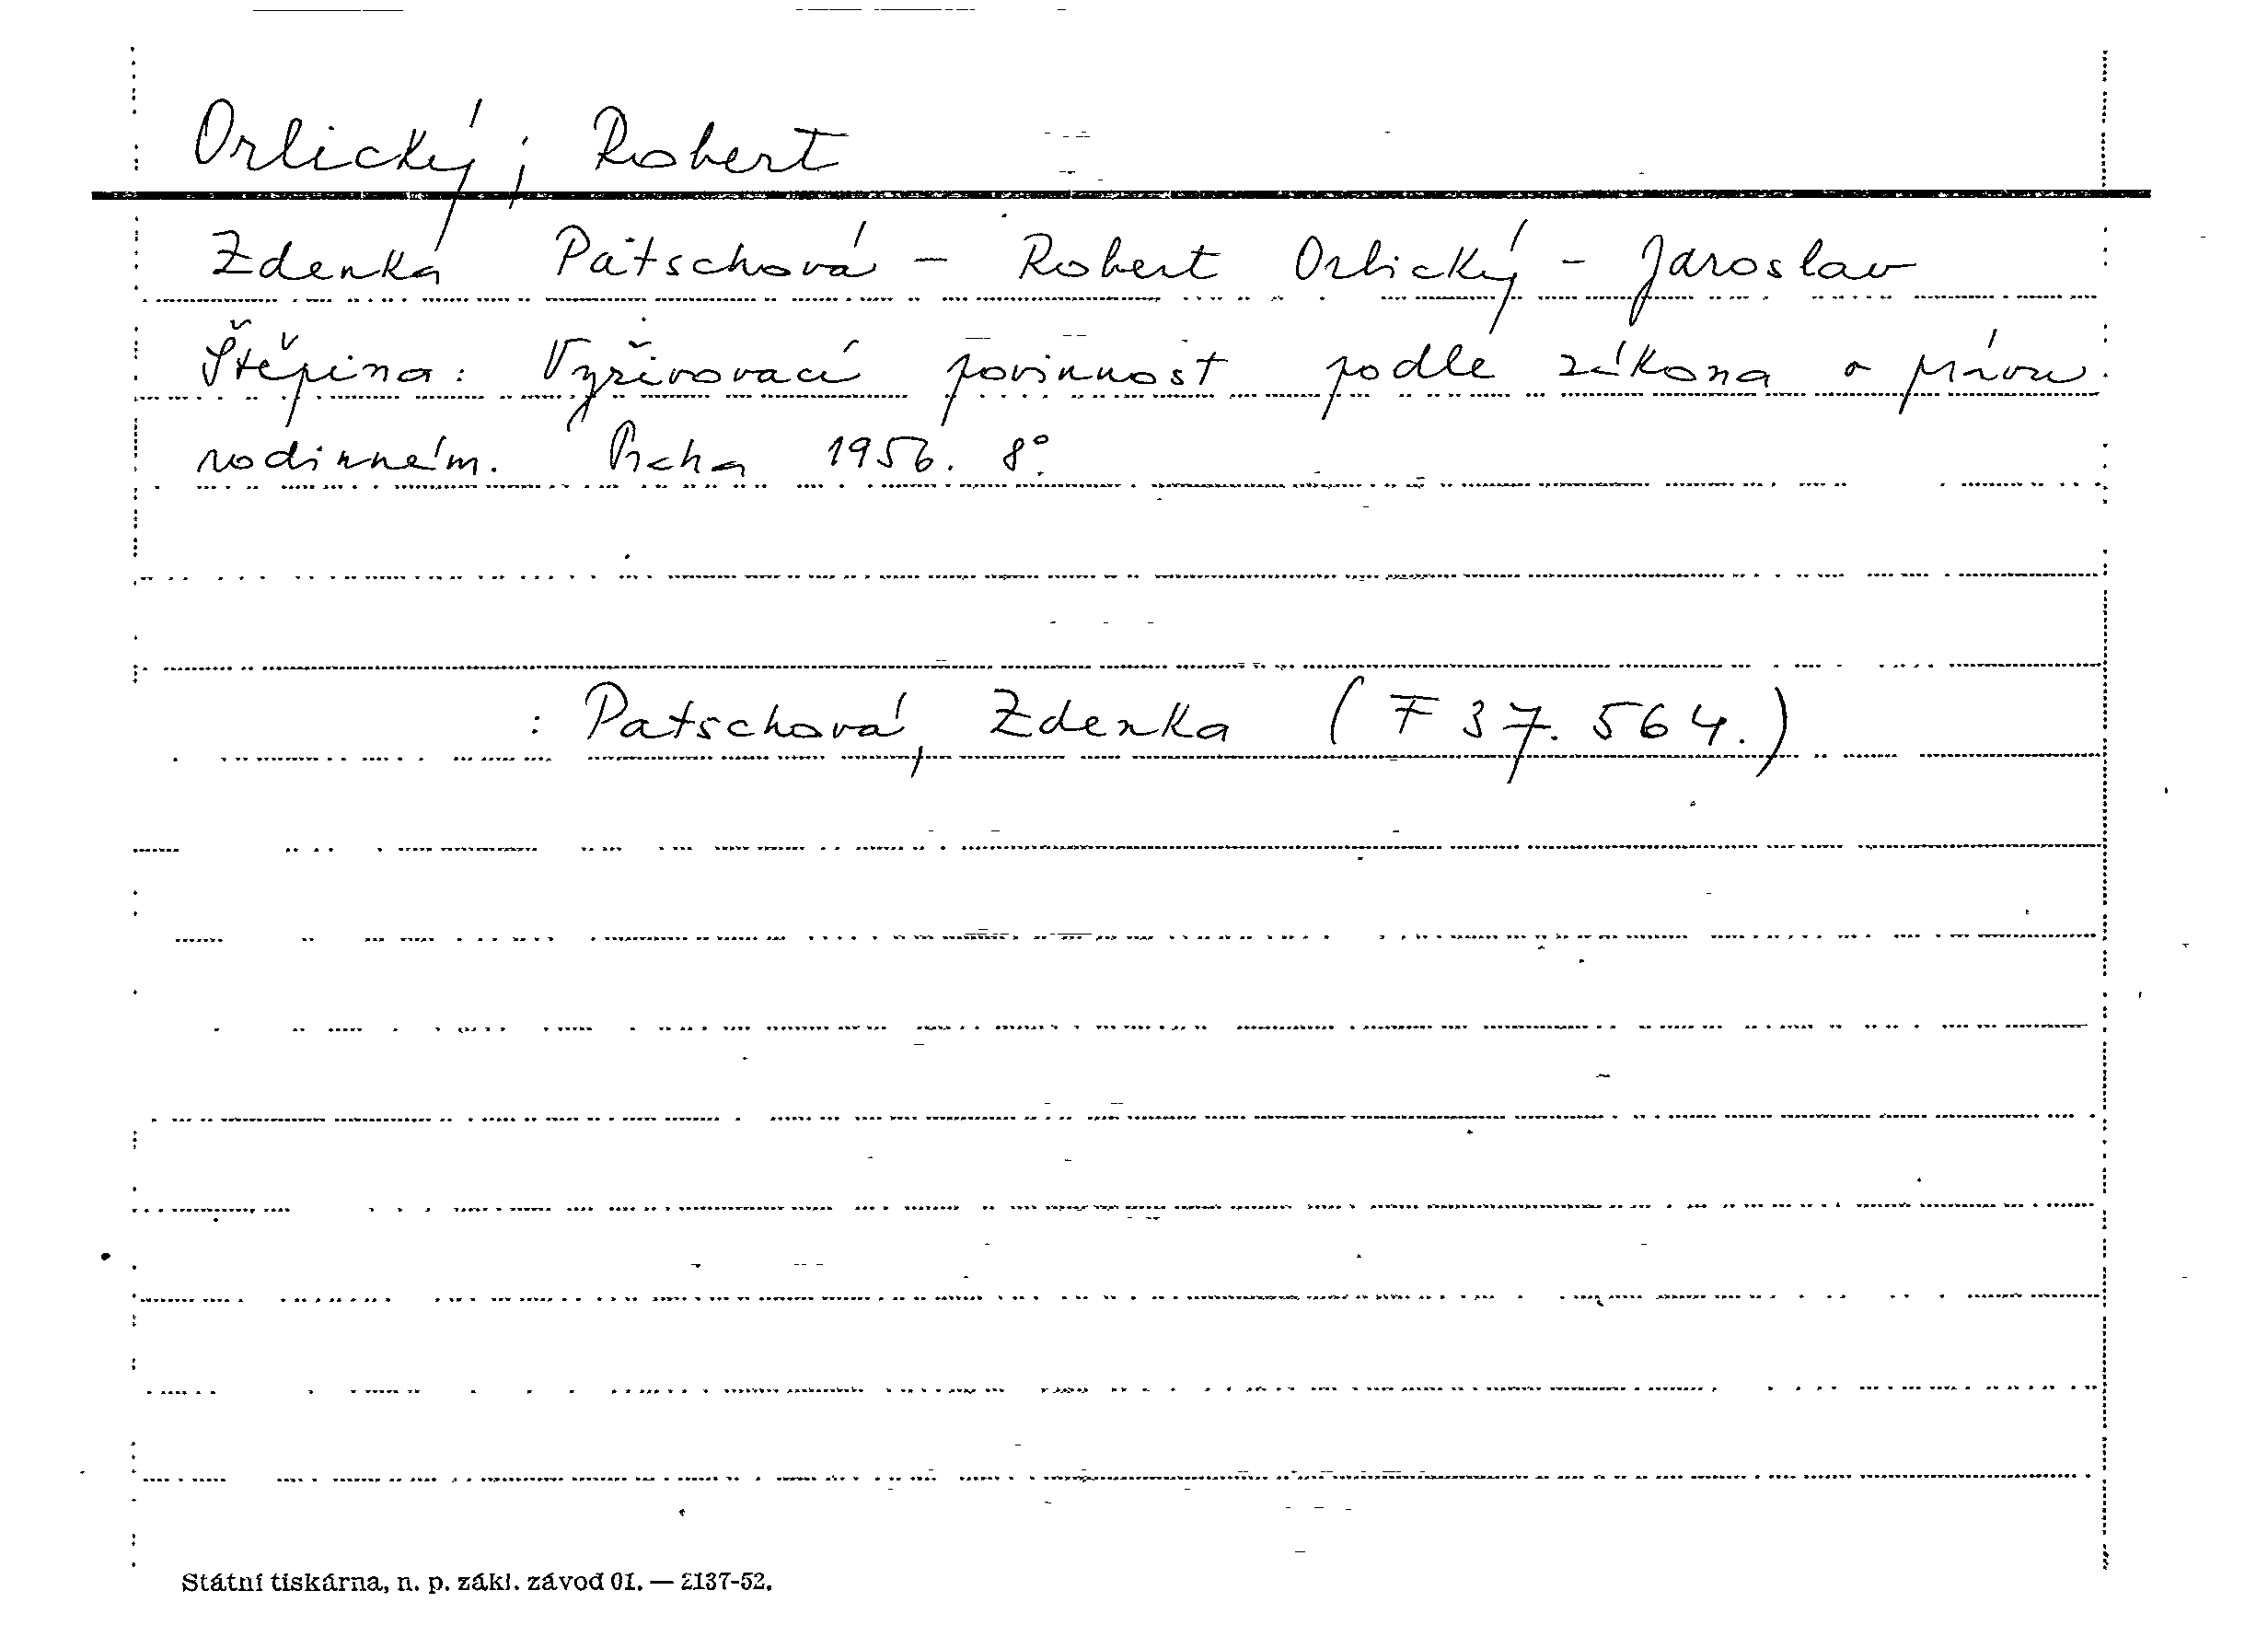 Orlický, Robert
Zdenka Patschová - Robert Orlický - Jaroslav
Štěpina: Vyživovací povinnost podle zákona o právu
rodinném. Praha 1956. 8°.
: Patschová, Zdenka (F 37.564.)
Státní tiskárna, n. p. zákl. závod 01. — 2137-52.